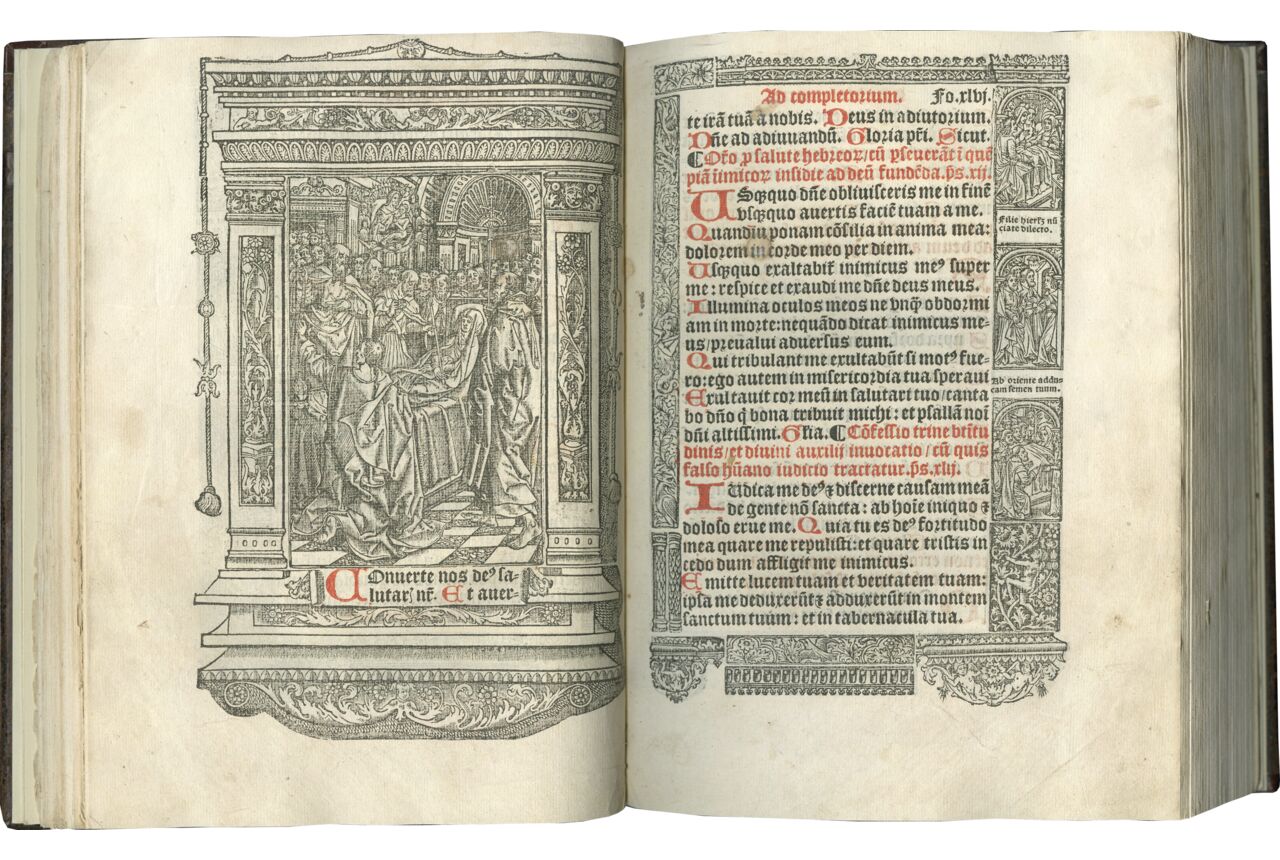 Conuerte nos de⁹ sa-
lutarꝭ nr̄. Et auer-
Ad completorium. Fo.xlvj.
te irā tuā a nobis. Deus in adiutorium.
Dn̄e ad adiuuandū. Gloria pr̄i. Sicut.
¶ Or̄o ꝓ salute hebreoꝝ/cū ꝑseuerāt ī que
piā inimicoꝝ insidie ad deū fundēda.ps.xij.
USq̄quo dn̄e obliuisceris me in finē
vsq̄quo auertis faciē tuam a me.
Quandiu ponam cōsilia in anima mea:
dolorem in corde meo per diem.
Usq̄quo exaltabit̄ inimicus me⁹ super
me: respice et exaudi me dn̄e deus meus.
Illumina oculos meos ne vnq̄ obdormi
am in morte: nequādo dicat inimicus me-
us/preualui aduersus eum.
Qui tribulant me exultabūt si mot⁹ fue-
ro: ego autem in misericordia tua speraui
Exultauit cor meū in salutari tuo/canta
bo dn̄o q̄ bona tribuit michi: et psallā noī
dn̄i altissimi. Gr̄ia. ¶ Cōfessio trine btītu
dinis/et diuini auxilij inuocatio/cū quis
falso hūano iudicio tractatur.ps.xlij.
IUdica me de⁹ ⁊ discerne causam meā
de gente nō sancta: ab hoīe iniquo ⁊
doloso erue me. Quia tu es de⁹ fortitudo
mea quare me repulisti: et quare tristis in
cedo dum affligit me inimicus.
Emitte lucem tuam et veritatem tuam:
ipsa me deduxerūt ⁊ adduxerūt in montem
sanctum tuum: et in tabernacula tua.
Filie hierꝭ nū
ciate dilecto.
Ab oriente addu-
cam semen tuum.